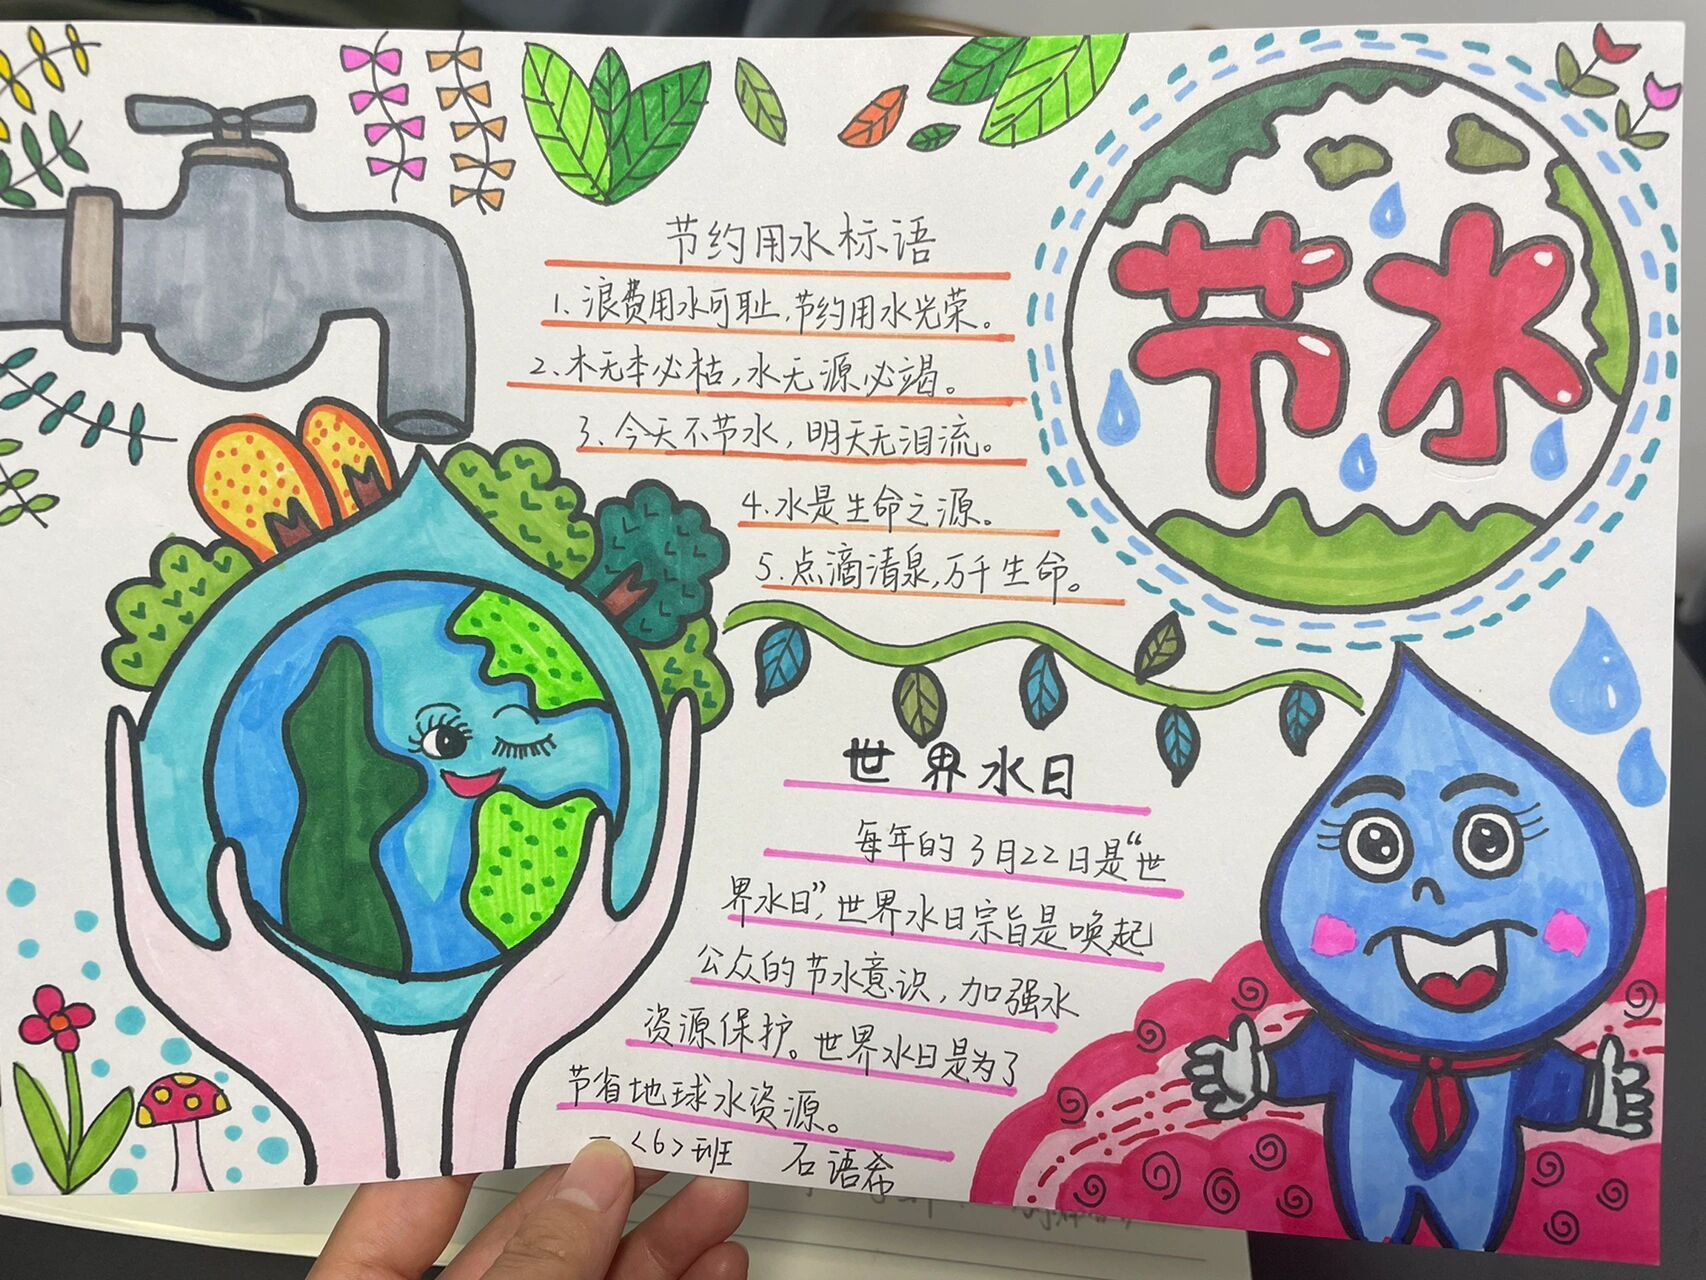 节水
节约用水标语
1.浪费用水可耻,节约用水光荣。
2.木无本必枯,水无源必竭。
3、今天不节水,明天无泪流。
4.水是生命之源。
5.点滴清泉,万千生命。
世界水日
每年的3月22日是“世
界水日”,世界水日宗旨是唤起
公众的节水意识,加强水
资源保护。世界水日是为了
节省地球水资源。
一<6>班 石语希